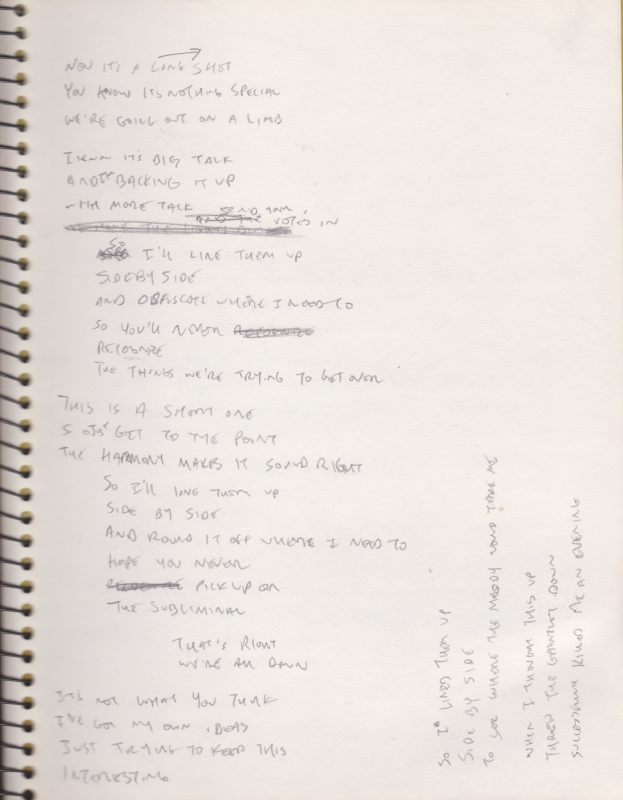 NOW IT'S A LONG SHOT
YOU KNOW IT'S NOTHING SPECIAL
WE'RE GOING OUT ON A LIMB
I KNOW IT'S BIG TALK
AND BACKING IT UP
WITH MORE TALK
SEND YOUR
AND THE VOTES IN
SO I'LL LINE THEM UP
SIDE BY SIDE
AND OBFUSCATE WHERE I NEED TO
SO YOU'LL NEVER RECOGNIZE
RECOGNIZE
THE THINGS WE'RE TRYING TO GET OVER
THIS IS A SHORT ONE
GET TO THE POINT
THE HARMONY MAKES IT SOUND RIGHT
SO I'LL LINE THEM UP
SIDE BY SIDE
AND ROUND IT OFF WHERE I NEED TO
HOPE YOU NEVER
PICK UP ON
THE SUBLIMINAL
THAT'S RIGHT
WE'RE ALL DOWN
IT'S NOT WHAT YOU THINK
I'VE GOT MY OWN IDEAS
JUST TRYING TO KEEP THIS
INTERESTING
SO I LINED THEM UP
SIDE BY SIDE
TO SEE WHERE THE MELODY WOULD TAKE ME
WHEN I THOUGHT THIS UP
THREW THE GAUNTLET DOWN
KILLED AN EVENING